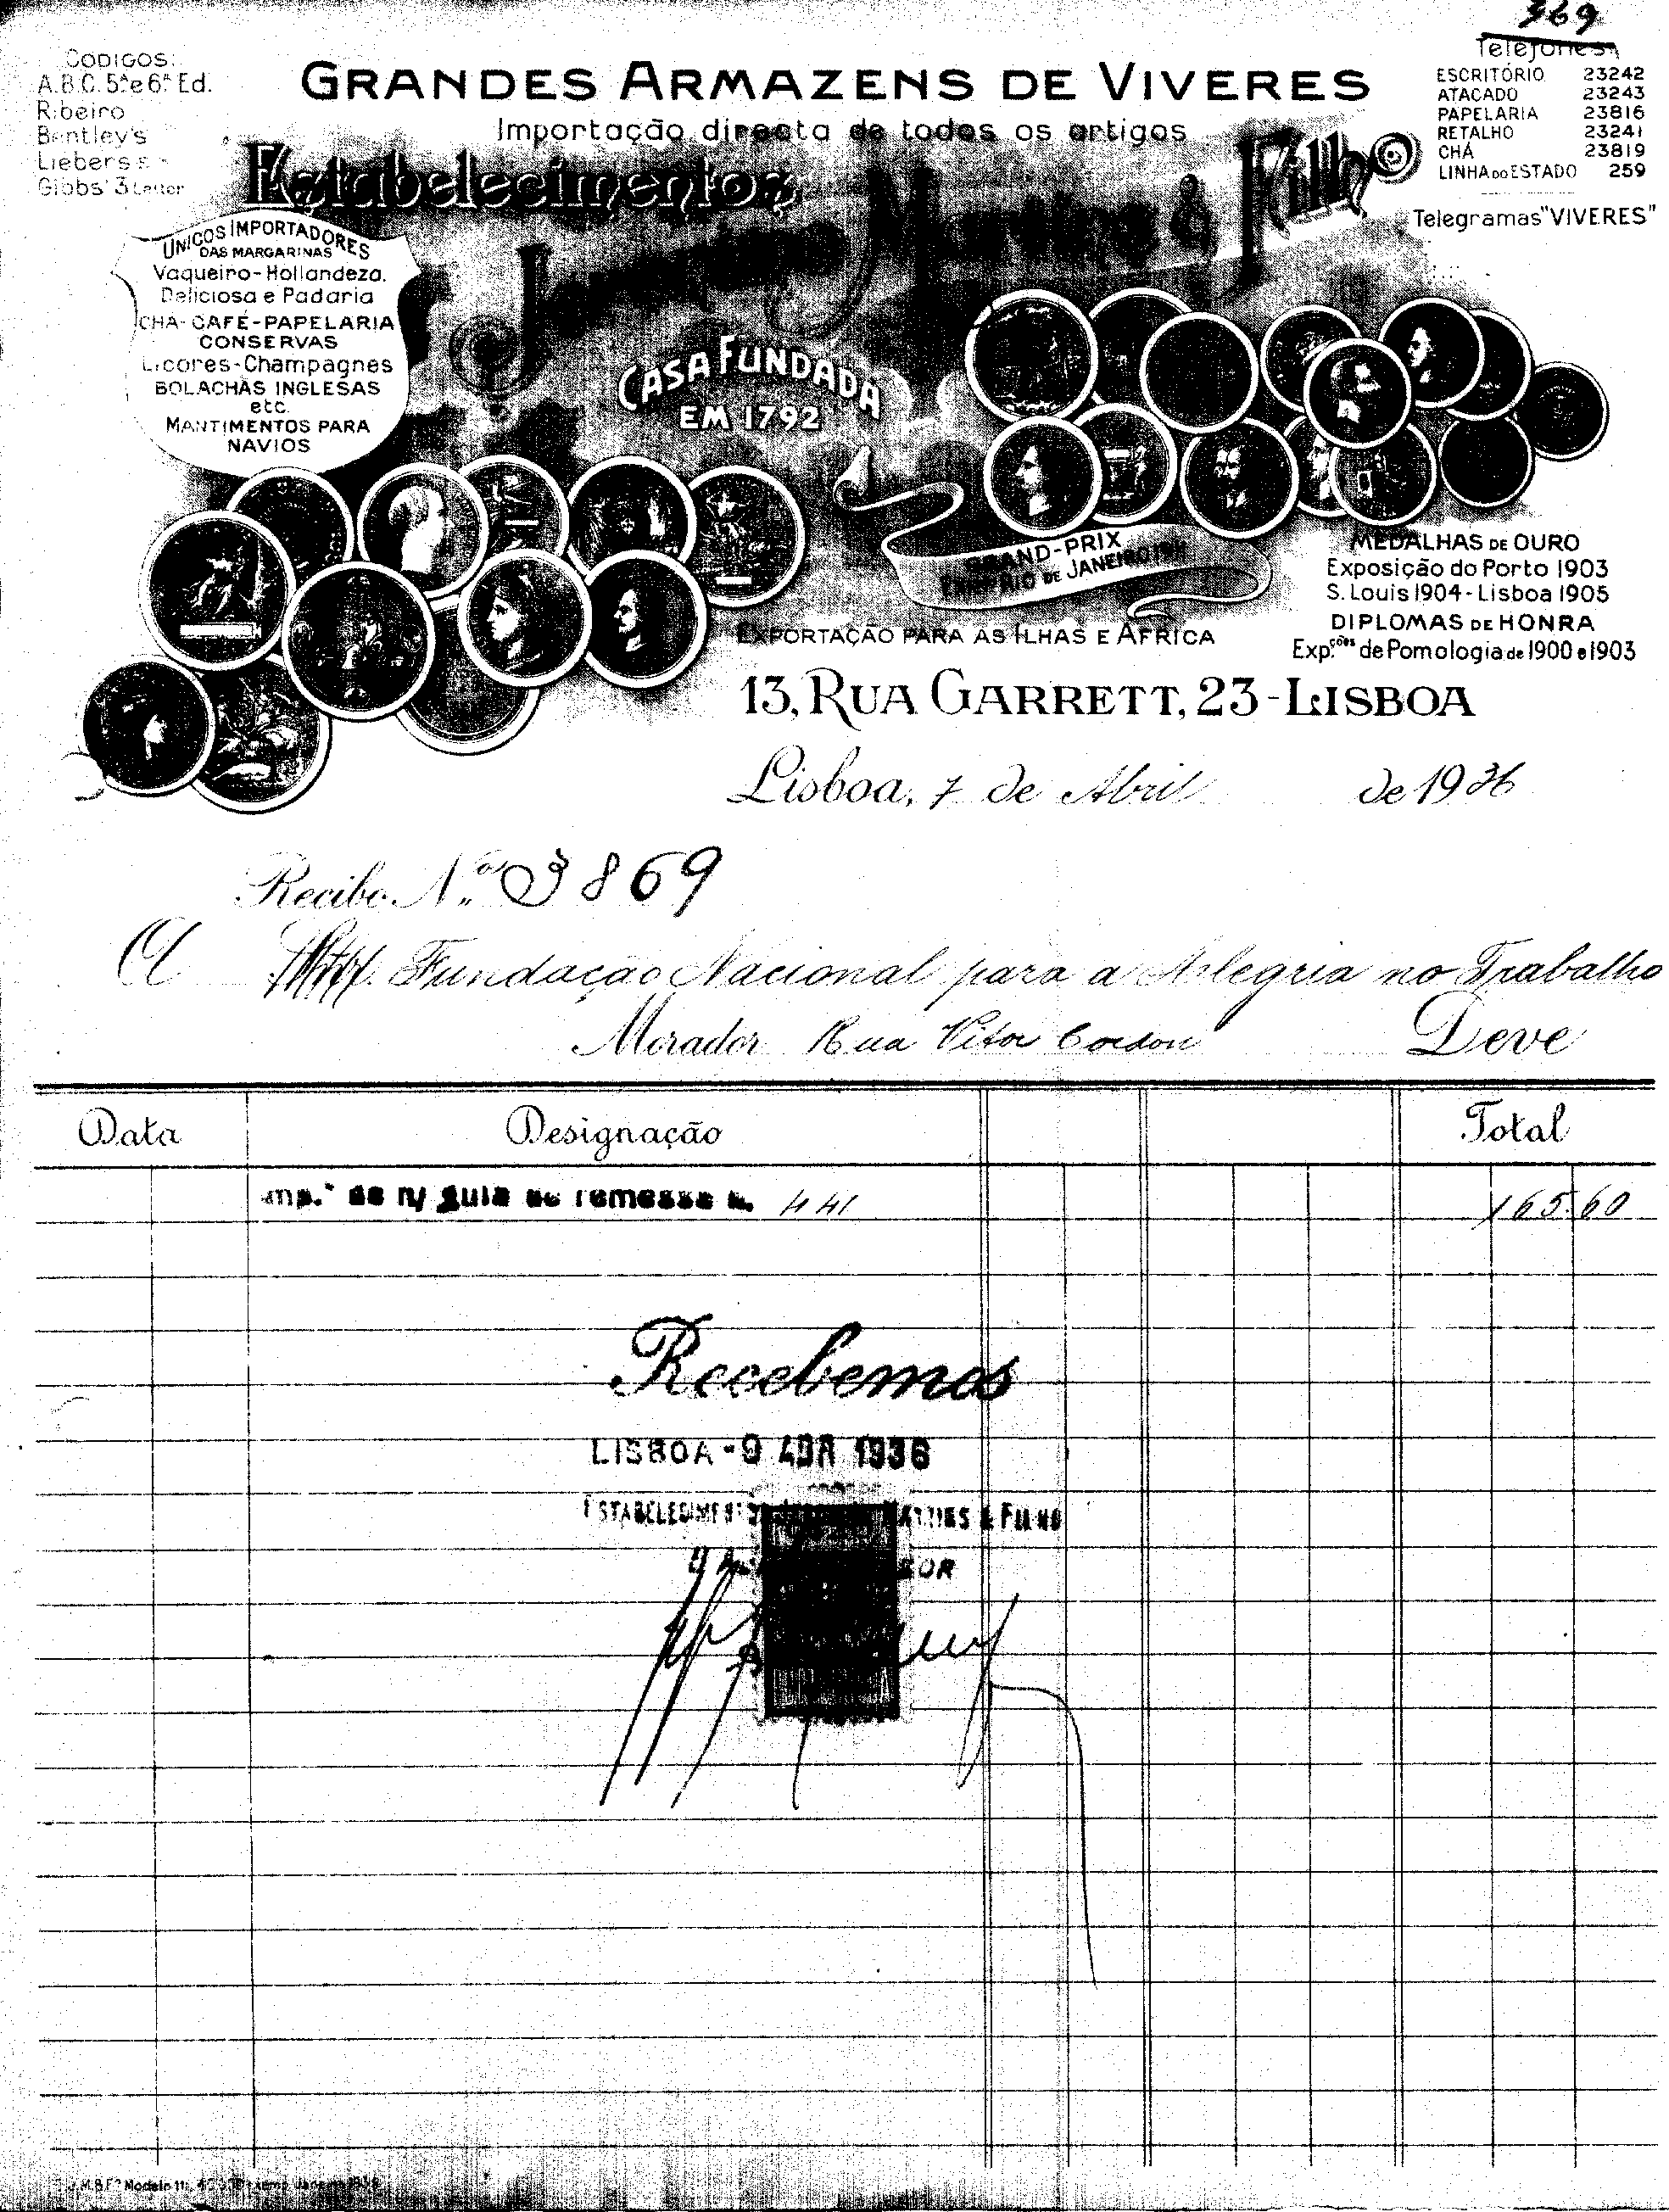 369
CODIGOS:
A.B.C. 5ª e 6ª Ed.
Ribeiro
Bentley's
Liebers
Gibbs' 3 Letter
GRANDES ARMAZENS DE VIVERES
Importação directa de todos os artigos
Estabelecimentos
Jeronimo Martins & Filho
Telefones
ESCRITÓRIO 23242
ATACADO 23243
PAPELARIA 23816
RETALHO 23241
CHÁ 23819
LINHA DO ESTADO 259
Telegramas "VIVERES"
UNICOS IMPORTADORES
DAS MARGARINAS
Vaqueiro-Hollandeza.
Deliciosa e Padaria
CHÁ-CAFÉ-PAPELARIA
CONSERVAS
Licores-Champagnes
BOLACHAS INGLESAS
etc.
MANTIMENTOS PARA
NAVIOS
CASA FUNDADA
EM 1792
GRAND-PRIX
RIO DE JANEIRO
MEDALHAS DE OURO
Exposição do Porto 1903
S. Louis 1904-Lisboa 1905
DIPLOMAS DE HONRA
Exp.ções de Pomologia de 1900 e 1903
EXPORTAÇÃO PARA AS ILHAS E AFRICA
13, RUA GARRETT, 23-LISBOA
Lisboa, 7 de Abril de 1936
Recibo N.º 03869
A Fundação Nacional para a Alegria no Trabalho
Morador Rua Vitor Cordon Deve
Data Designação Total
Imp.ª de n/ guia de remessa n. 441 165.60
Recebemos
LISBOA - 9 ABR 1936
ESTABELECIMENTOS MARTINS & FILHO
J.M.& F.º Modelo 11